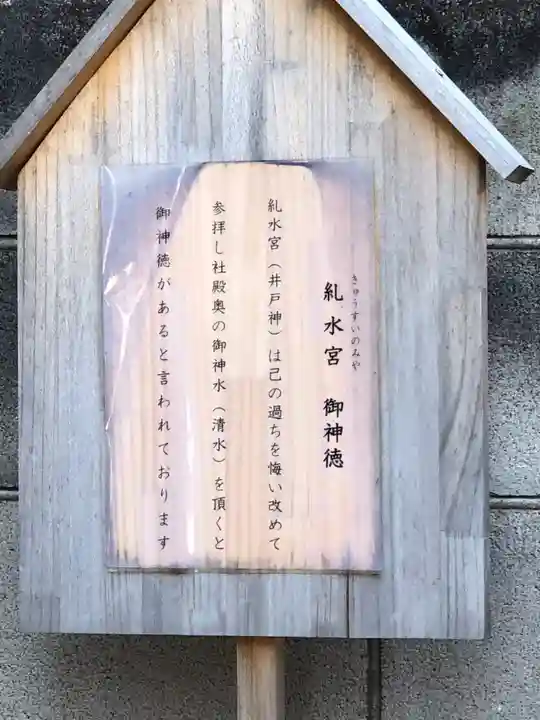 きゅうすいのみや
糺水宮　御神徳
糺水宮（井戸神）は己の過ちを悔い改めて
参拝し社殿奥の御神水（清水）を頂くと
御神徳があると言われております